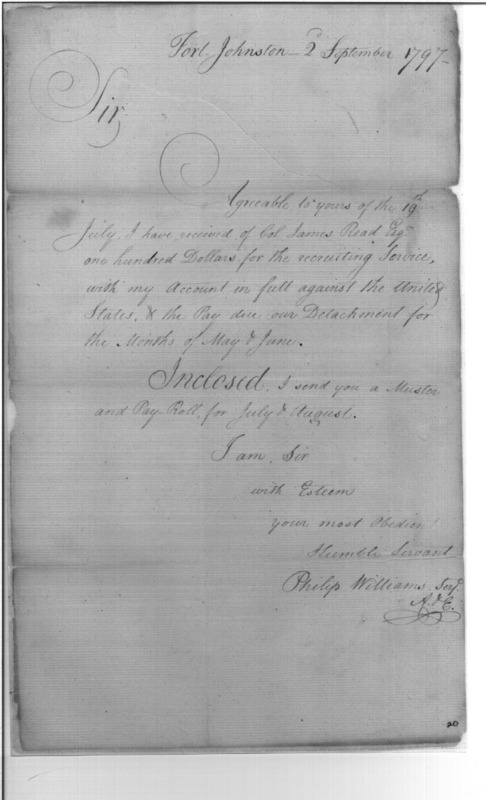 Fort Johnston - 2d September 1797 -
Sir
Agreable to yours of the 19th
July, I have received of Col. James Read Esqr
one hundred Dollars for the recruiting Service,
with my Account in full against the United
States, & the Pay due our Detachment for
the Months of May & June.
Inclosed, I send you a Muster
and Pay-Roll, for July & August.
I am, Sir
with Esteem
your most Obedient
Humble Servant
Philip Williams Serjt.
A. & E.
20